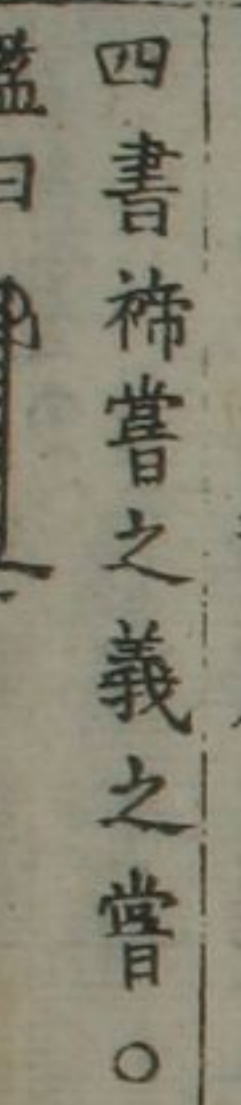 四書禘嘗之義之嘗。